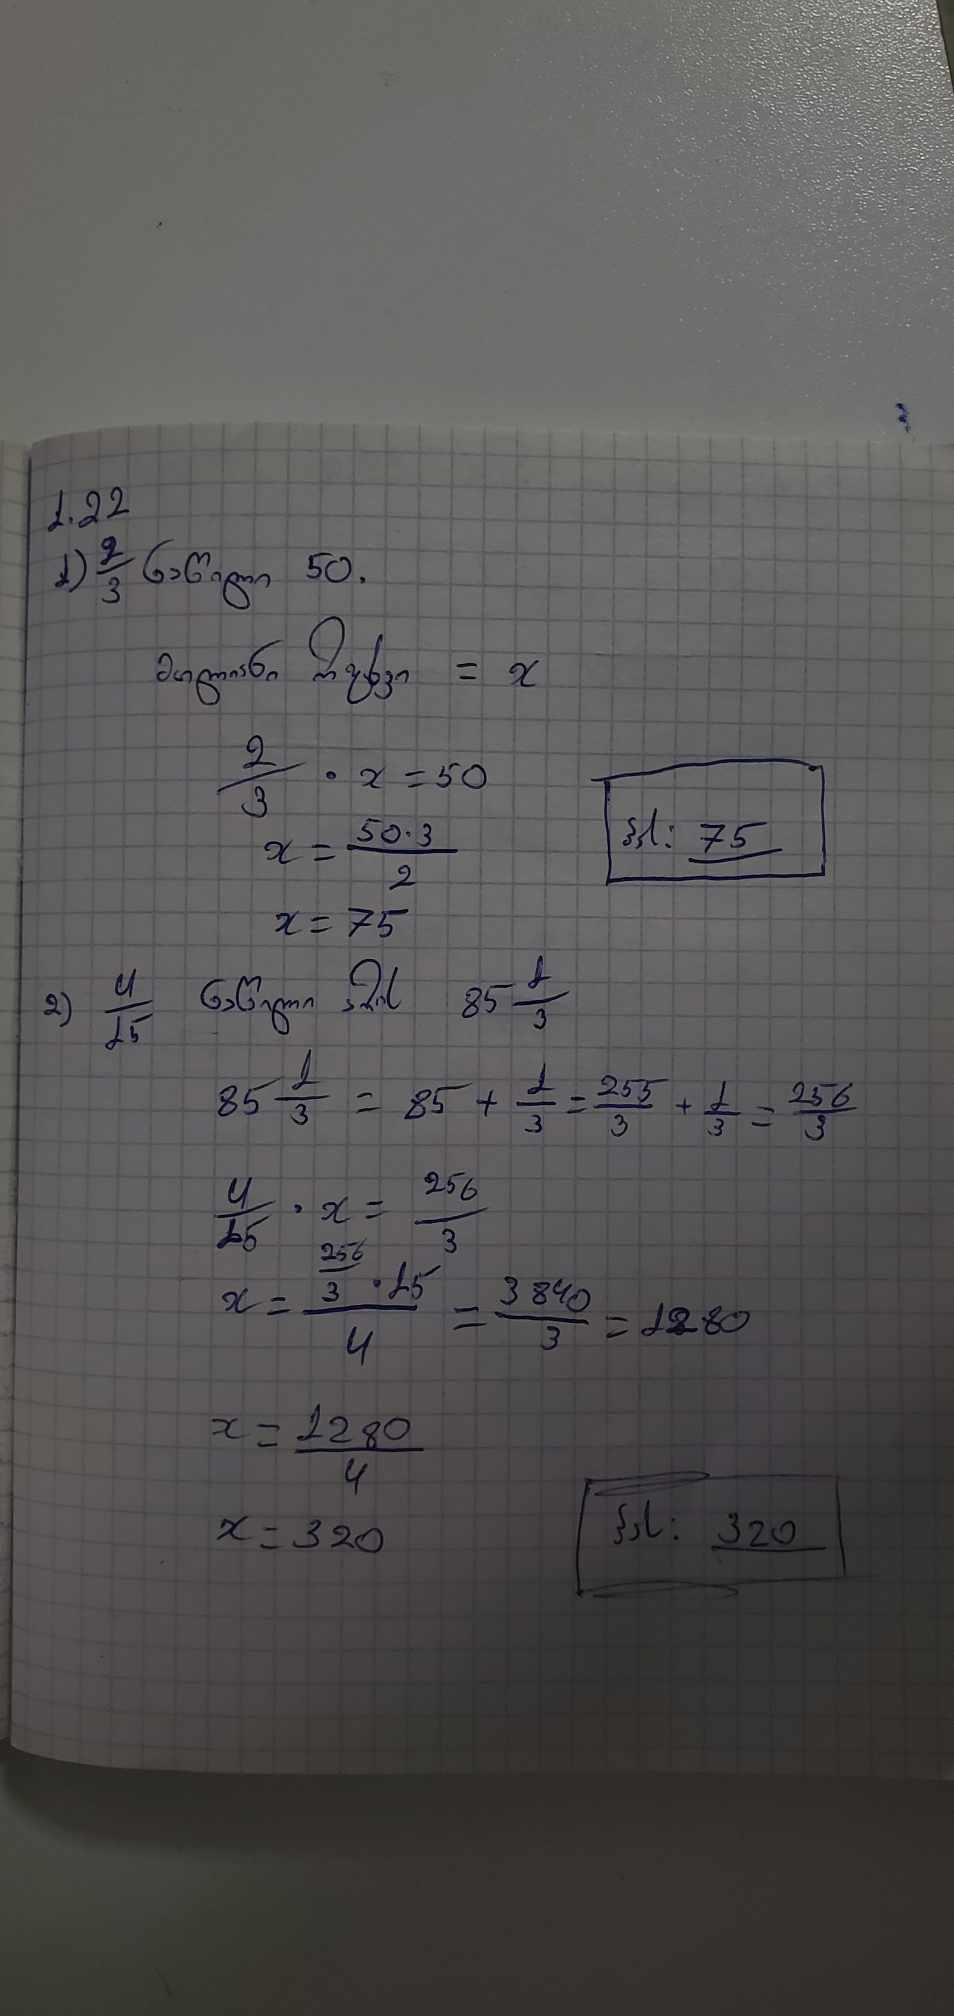 1.22
1) 2/3 ნაწილი 50.
მთლიანი რიცხვი = x
2/3 · x = 50
x = 50·3/2
პს: 75
x = 75
2) 4/15 ნაწილი არის 85 1/3
85 1/3 = 85 + 1/3 = 255/3 + 1/3 = 256/3
4/15 · x = 256/3
x = 256/3 · 15/4 = 3840/3 = 1280
x = 1280/4
x = 320
პს: 320